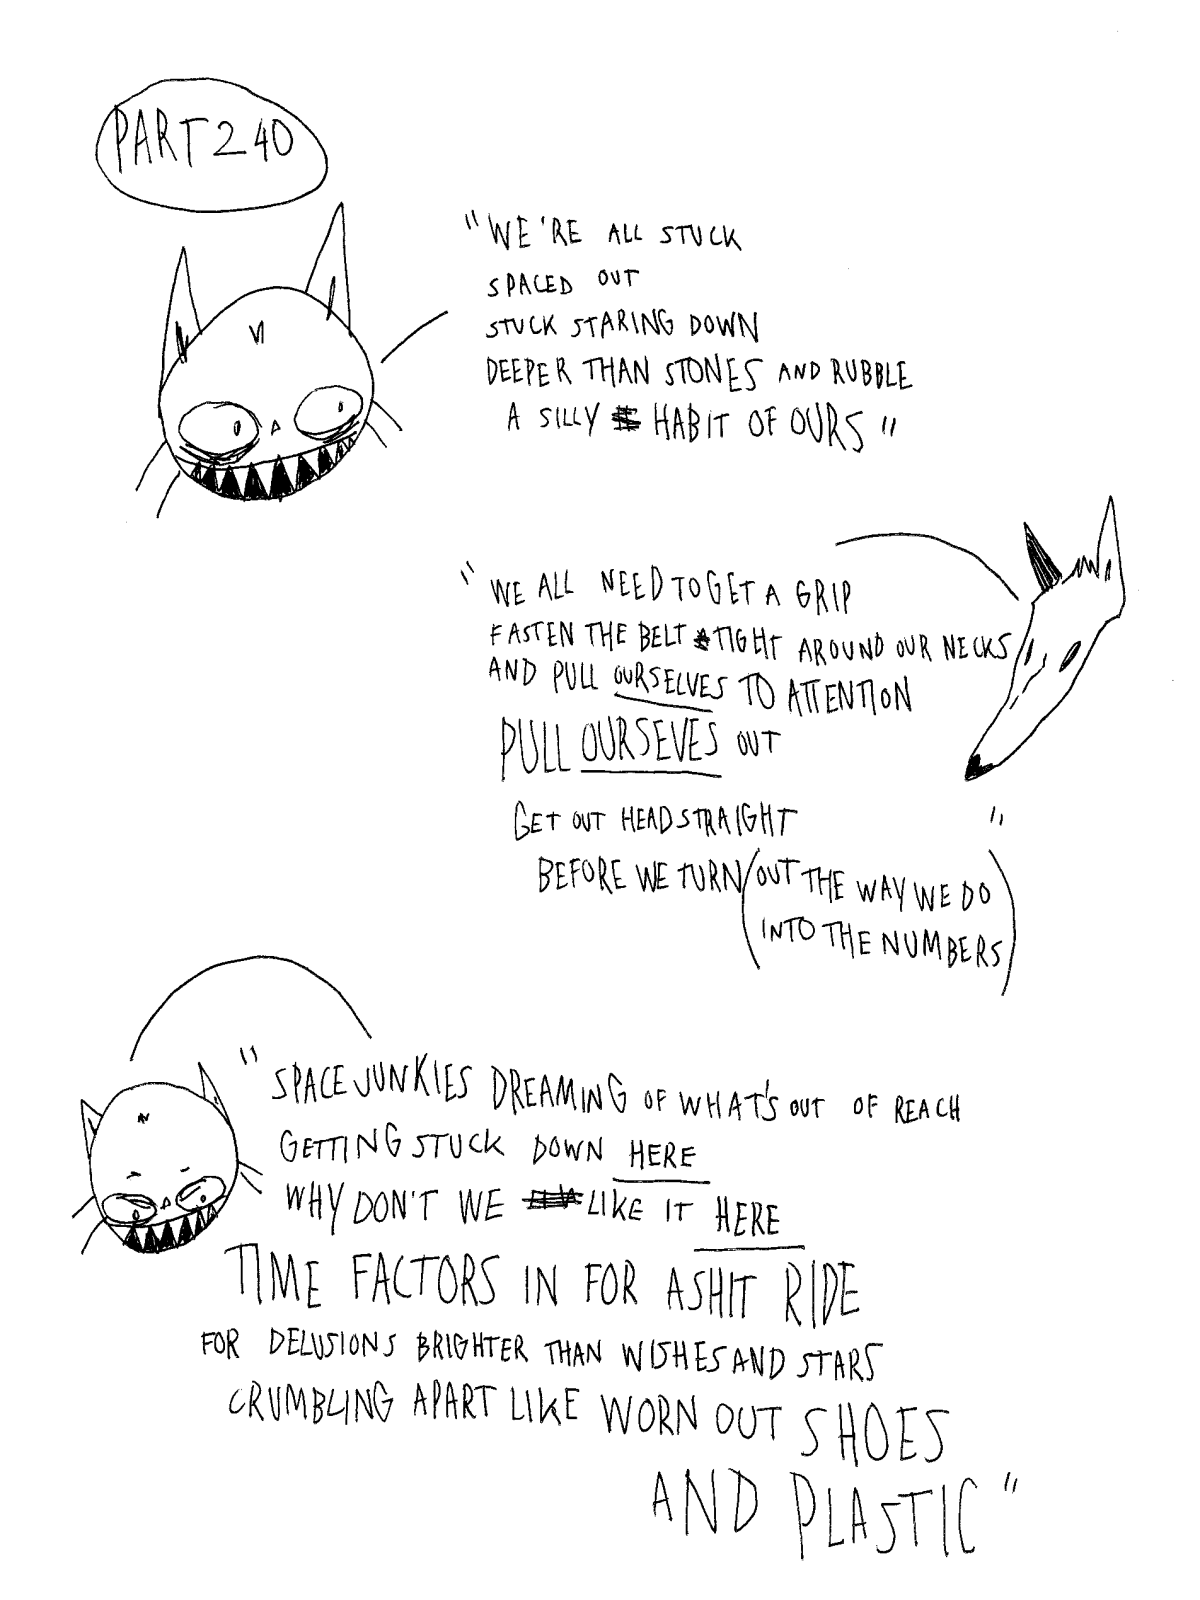 PART 240
"WE'RE ALL STUCK
SPACED OUT
STUCK STARING DOWN
DEEPER THAN STONES AND RUBBLE
A SILLY HABIT OF OURS"
"WE ALL NEED TO GET A GRIP
FASTEN THE BELT TIGHT AROUND OUR NECKS
AND PULL OURSELVES TO ATTENTION
PULL OURSEVES OUT
GET OUT HEAD STRAIGHT "
BEFORE WE TURN (OUT THE WAY WE DO
INTO THE NUMBERS)
"SPACE JUNKIES DREAMING OF WHAT'S OUT OF REACH
GETTING STUCK DOWN HERE
WHY DON'T WE LIKE IT HERE
TIME FACTORS IN FOR A SHIT RIDE
FOR DELUSIONS BRIGHTER THAN WISHES AND STARS
CRUMBLING APART LIKE WORN OUT SHOES
AND PLASTIC"